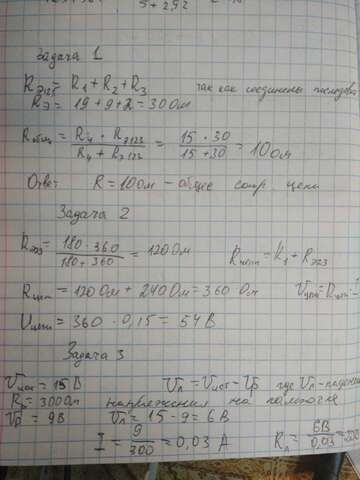 5 + 2,92
Задача 1
Rэ123 = R1 + R2 + R3 так как соединены последова
Rэ = 19 + 9 + 2 = 30 Ом
Rобщ = R4 · Rэ123 / R4 + Rэ123 = 15 · 30 / 15 + 30 = 10 Ом
Ответ R = 10 Ом – общее сопр. цепи
Задача 2
Rэ23 = 180 · 360 / 180 + 360 = 120 Ом Rцепи = R1 + Rэ23
Rцепи = 120 Ом + 240 Ом = 360 Ом Uцепи = Rцепи ·
Uцепи = 360 · 0,15 = 54 В
Задача 3
Uист = 15 В Uл = Uист – Up где Uл – падение
Rр = 300 Ом напряжения на лампочке
Up = 9 В Uл = 15 – 9 = 6 В
I = 9 / 300 = 0,03 А Rл = 6В / 0,03 = 200